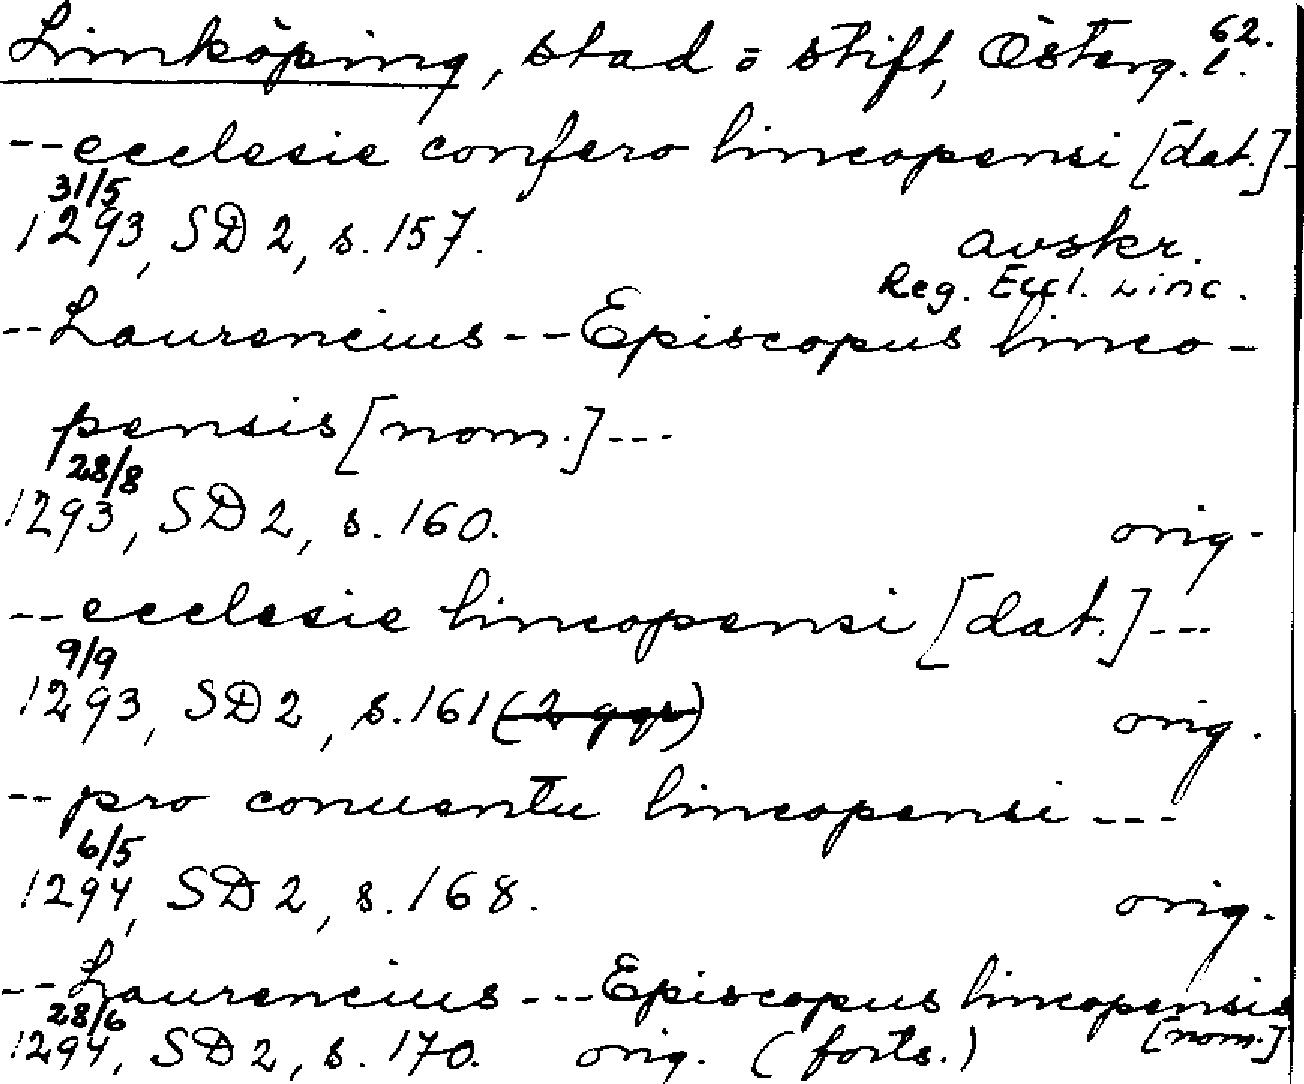 62.
Linköping, stad o stift, Österg. l.
--ecclesie confero lincopensi [dat.]-
31/5
1293, SD 2, s. 157. avskr.
Reg. Eccl. Linc.
--Laurencius---Episcopus linco-
pensis [nom.]---
28/8
1293, SD 2, s. 160. orig.
--ecclesie lincopensi [dat.]---
9/9
1293, SD 2, s. 161 (2 ggr) orig.
--pro conuentu lincopensi---
6/5
1294, SD 2, s. 168. orig.
--Laurencius---Episcopus lincopensis
[nom.]
28/6
1294, SD 2, s. 170. orig. (forts.)